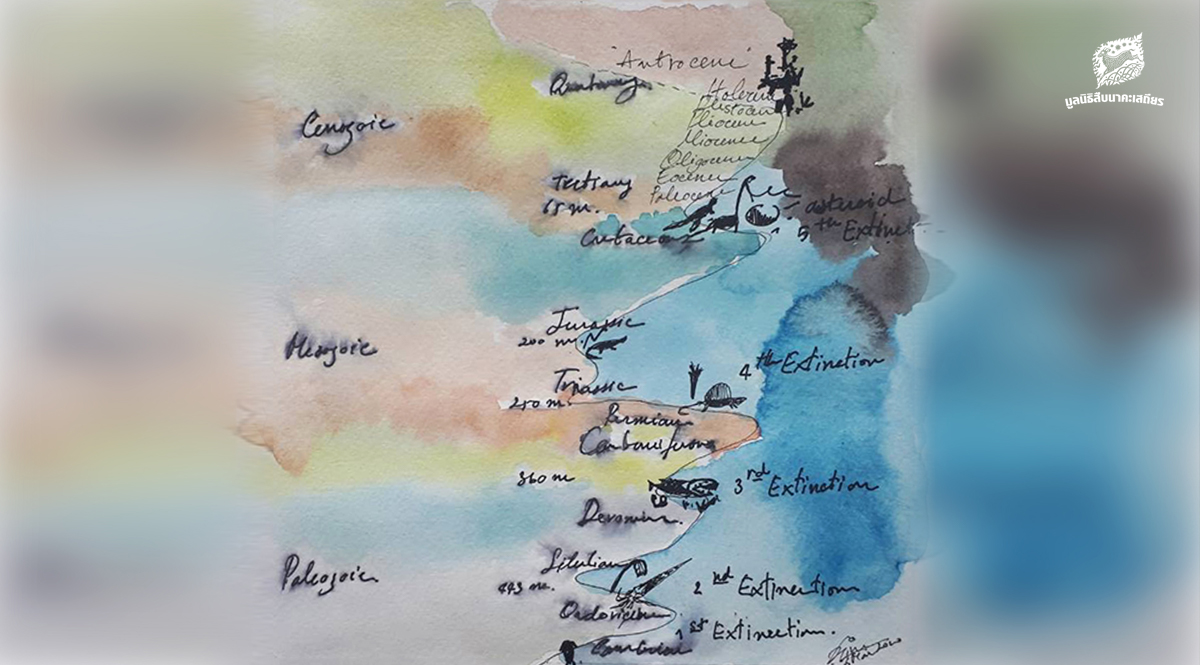 มูลนิธิสืบนาคะเสถียร
"Antrocene"
Holocene
Pliocene
Miocene
Oligocene
Eocene
Paleocene
Cenozoic
Tertiary
65 m.
Rec
asteroid
5th Extinct
Cretaceous
Jurassic
200 m.
Mesozoic
4th Extinction
Triassic
250 m.
Permian
360 m
3rd Extinction
Devonian.
Silurian
443 m.
Paleozoic
2nd Extinection
Ordovician
1st Extinection.